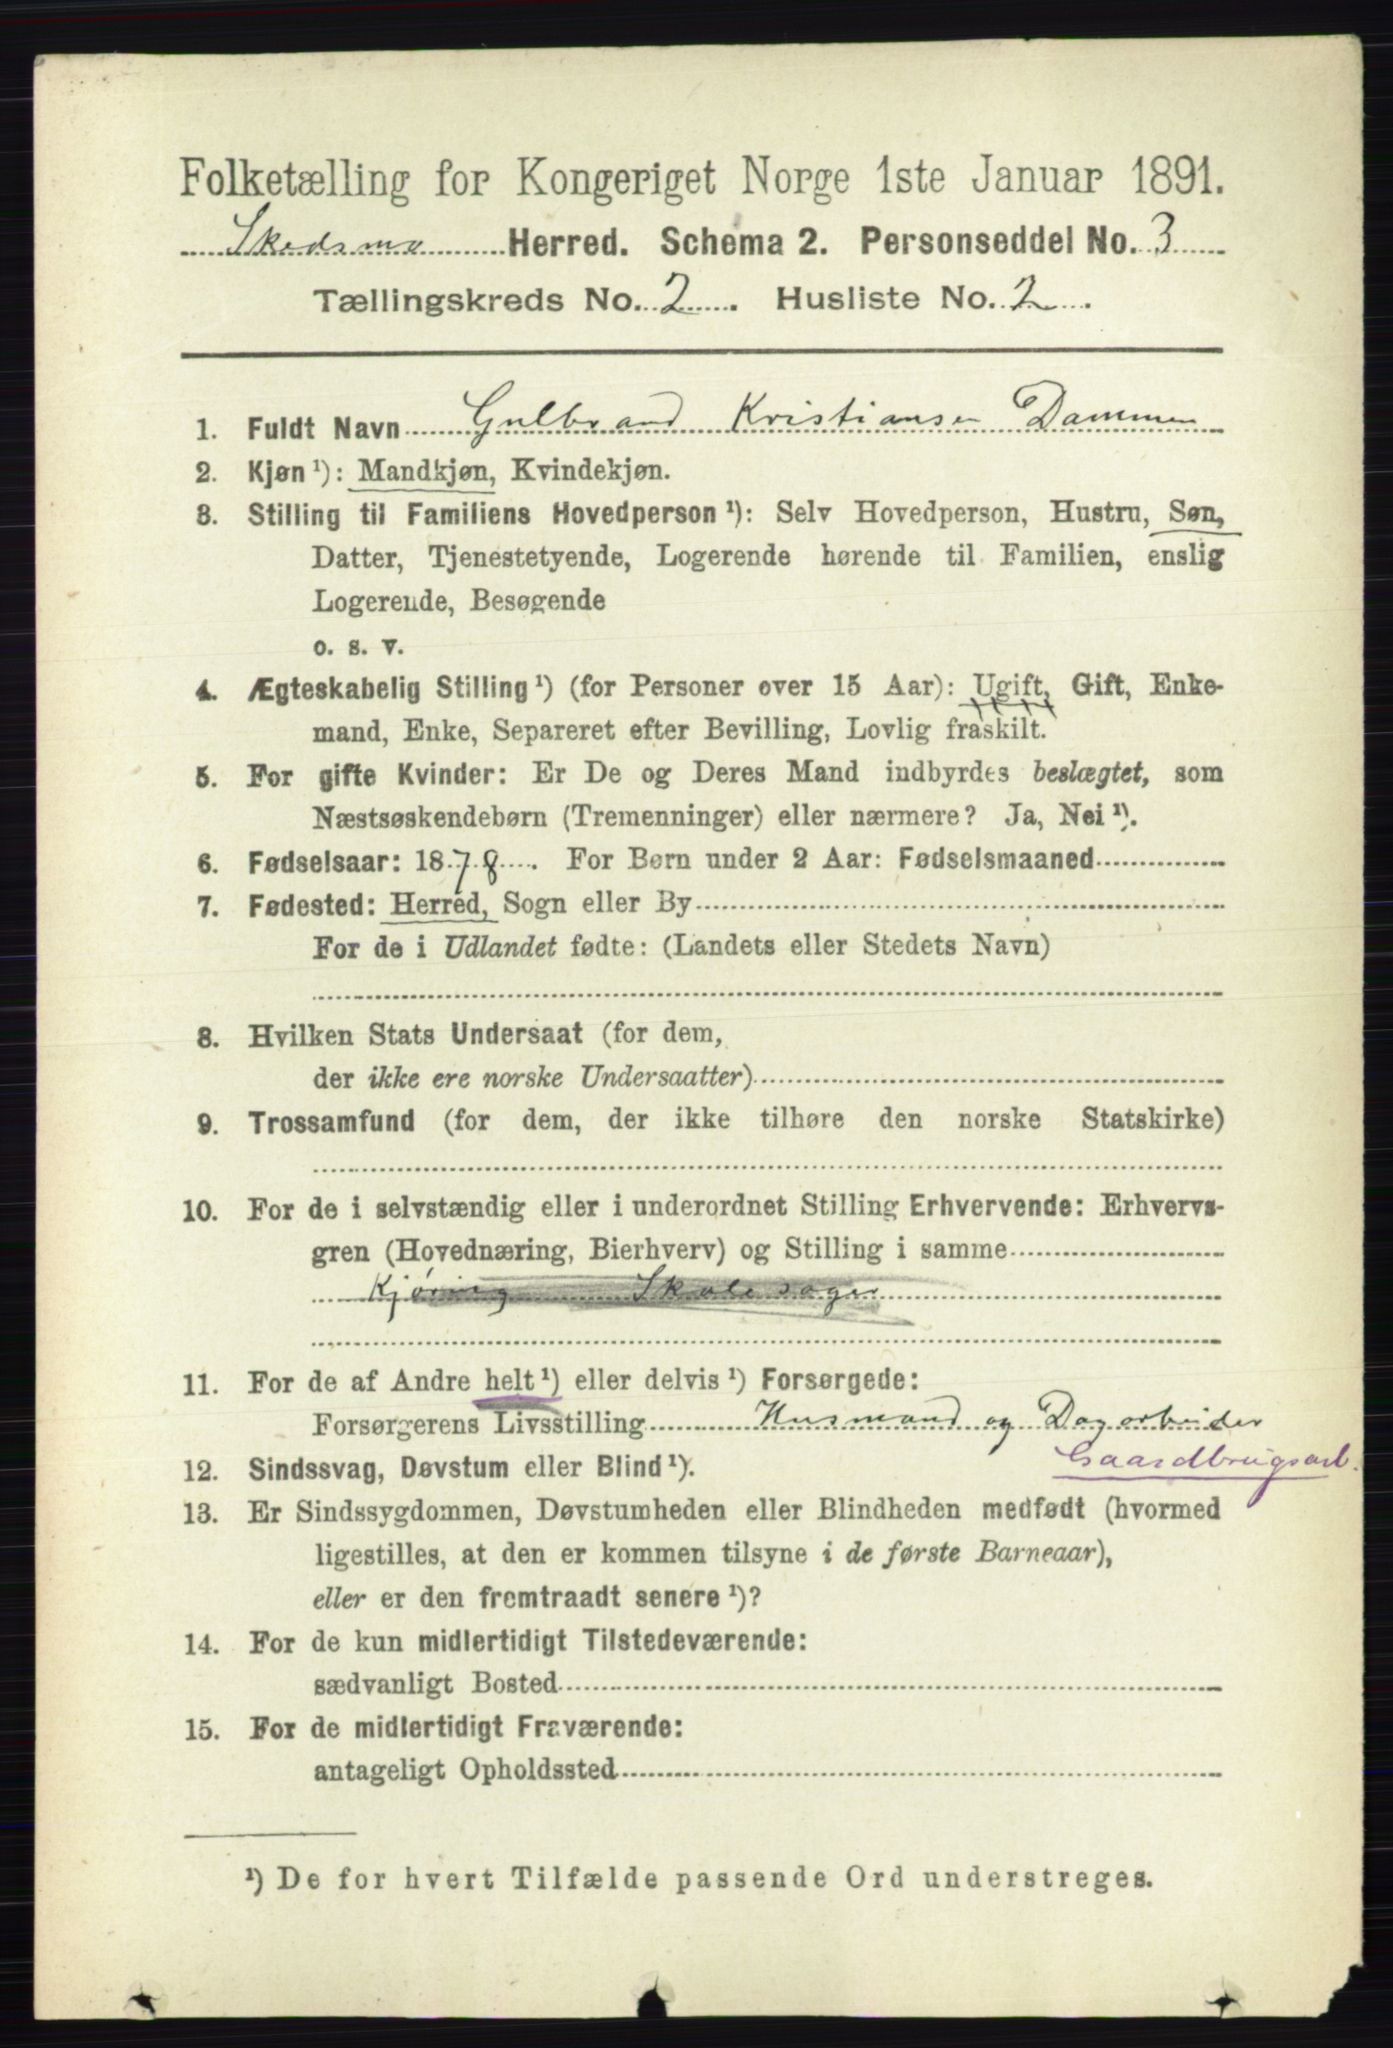 Folketælling for Kongeriget Norge 1ste Januar 1891.
Skedsmo Herred. Schema 2. Personseddel No. 3
Tællingskreds No. 2. Husliste No. 2.
1. Fuldt Navn Gulbrand Kristiansen Dammen
2. Kjøn ¹): Mandkjøn, Kvindekjøn.
3. Stilling til Familiens Hovedperson ¹): Selv Hovedperson, Hustru, Søn,
Datter, Tjenestetyende, Logerende hørende til Familien, enslig
Logerende, Besøgende
o. s. v.
4. Ægteskabelig Stilling ¹) (for Personer over 15 Aar): Ugift, Gift, Enke-
mand, Enke, Separeret efter Bevilling, Lovlig fraskilt.
5. For gifte Kvinder: Er De og Deres Mand indbyrdes beslægtet, som
Næstsøskendebørn (Tremenninger) eller nærmere? Ja, Nei ¹).
6. Fødselsaar: 1878. For Børn under 2 Aar: Fødselsmaaned
7. Fødested: Herred, Sogn eller By
For de i Udlandet fødte: (Landets eller Stedets Navn)
8. Hvilken Stats Undersaat (for dem,
der ikke ere norske Undersaatter)
9. Trossamfund (for dem, der ikke tilhøre den norske Statskirke)
10. For de i selvstændig eller i underordnet Stilling Erhvervende: Erhvervs-
gren (Hovednæring, Bierhverv) og Stilling i samme
Kjøring Skolesøger
11. For de af Andre helt ¹) eller delvis ¹) Forsørgede:
Forsørgerens Livsstilling Husmand og Dagarbeider
Gaardbrugsarb.
12. Sindssvag, Døvstum eller Blind ¹).
13. Er Sindssygdommen, Døvstumheden eller Blindheden medfødt (hvormed
ligestilles, at den er kommen tilsyne i de første Barneaar),
eller er den fremtraadt senere ¹)?
14. For de kun midlertidigt Tilstedeværende:
sædvanligt Bosted
15. For de midlertidigt Fraværende:
antageligt Opholdssted
¹) De for hvert Tilfælde passende Ord understreges.